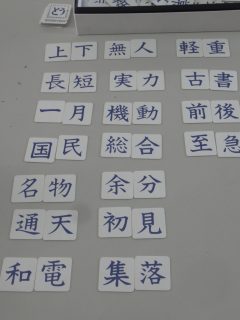 どう
上下 無人 軽重
長短 実力 古書
一月 機動 前後
国民 総合 至急
名物 余分
通天 初見
和電 集落